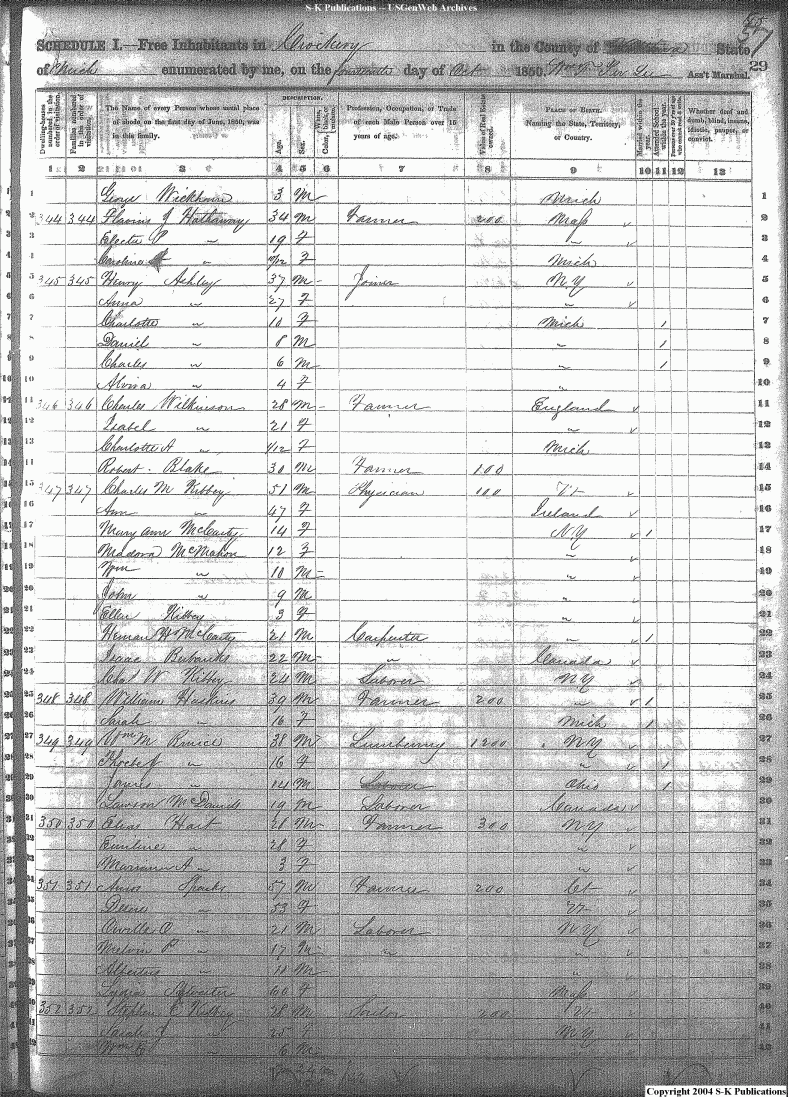 S-K Publications -- USGenWeb Archives
55
57
SCHEDULE I.—Free Inhabitants in Crockery in the County of State
of Mich enumerated by me, on the fourteenth day of Oct 1850. Ass't Marshal. 29
Dwelling-houses numbered in the order of visitation. Families numbered in the order of visitation. The Name of every Person whose usual place of abode on the first day of June, 1850, was in this family. DESCRIPTION. Age. Sex. Color Profession, Occupation, or Trade of each Male Person over 15 years of age. Value of Real Estate owned. PLACE OF BIRTH. Naming the State, Territory, or Country. Married within the year. Attended School within the year. Whether deaf and dumb, blind, insane, idiotic, pauper, or convict.
1 2 3 4 5 6 7 8 9 10 11 12 13
1 Wickham 3 M Mich 1
2 344 344 J Hathaway 34 M Farmer 200 Mass 2
3 Electa P " 19 F " 3
4 Caroline " F Mich 4
5 345 345 Henry Ashley 37 M Joiner N.Y 5
6 Anna " 27 F " 6
7 Charlotte " 10 F Mich 1 7
8 Daniel " 8 M " 1 8
9 Charles " 6 M " 1 9
10 Alvira " 4 F " 10
11 346 346 Charles Wilkinson 28 M Farmer England 11
12 Isabel " 21 F " 12
13 Charlotte A " 4/12 F Mich 13
14 Robert Blake 30 M Farmer 100 14
15 347 347 Charles M Kibbey 51 M Physician 100 Vt 15
16 Ann " 47 F Ireland 16
17 Mary Ann McCarty 14 F NY 1 17
18 Madora McMahon 12 F " 18
19 Wm " 10 M " 19
20 John " 9 M " 20
21 Ellen Kibbey 3 F " 21
22 Heman H McCarty 21 M Carpenter " 1 22
23 Isaac Eubanks 22 M " Canada 23
24 Chas W Kibbey 24 M Laborer NY 24
25 348 348 William Haskins 39 M Farmer 200 " 1 25
26 Sarah " 16 F Mich 1 26
27 349 349 Wm M 38 M Lumbering 1200 NY 27
28 Phoebe " 16 F " 1 28
29 James " 14 M Laborer Ohio 1 29
30 Lawson McDaniels 19 M Laborer Canada 30
31 350 350 Elias Hart 28 M Farmer 300 NY 31
32 Emeline " 28 F " 32
33 Mariann A " 3 F " 33
34 351 351 Amos Sparks 57 M Farmer 200 Ct 34
35 " 53 F Vt 35
36 Orville C " 21 M Laborer NY 36
37 Melvin P " 17 M " " 37
38 Albertus " 11 M " 38
39 Lydia Sylvester 60 F Mass 39
40 352 352 Stephen C Kibbey 28 M 200 Vt 40
41 Sarah J " 25 F NY 41
42 Wm " 6 M 42
Copyright 2004 S-K Publications